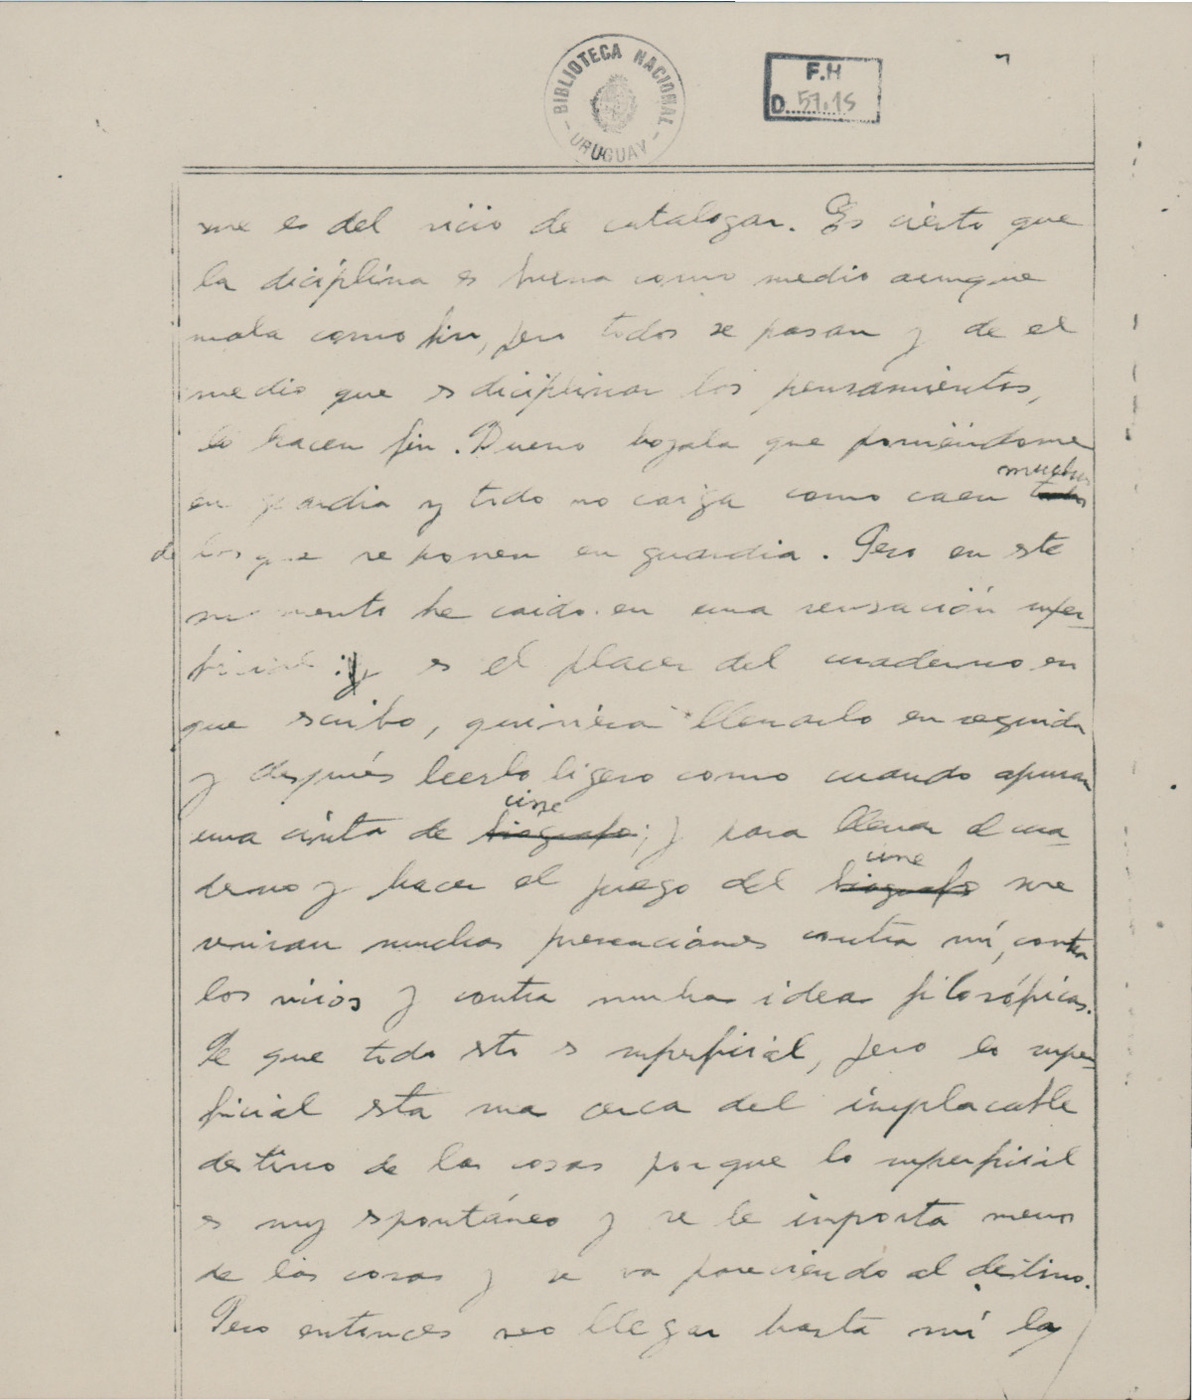 BIBLIOTECA NACIONAL
URUGUAY
F.H
D. 51.15
me es del vicio de catalogar. Es cierto que
la diciplina es buena como medio aunque
mala como fin, pero todos se pasan y de el
medio que es diciplinar los pensamientos,
lo hacen fin. Bueno que poniéndome
muchos
en guardia y todo no caiga como caen todos
de los que se ponen en guardia. Pero en este
momento he caido en una sensación super-
ficial: y es el placer del cuaderno en
que escribo, quisiera llenarlo en seguida
y después leerlo ligero como cuando apuran
cine
una cinta de biografo; y para llenar el cua-
cine
derno y hacer el juego del biografo me
vinieran muchas prevenciones contra mí, contra
los vicios y contra mucha idea filosóficas.
Se que todo esto es superficial, pero lo super-
ficial esta ma cerca del implacable
destino de las cosas porque lo superficial
es muy espontáneo y se le importa menos
de las cosas y se va pareciendo al destino.
Pero entonces veo llegar hasta mí la